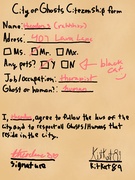 City of Ghosts Citizenship form
Name:
Address: 407 Lava Lane
Ms. Mr. Mx.
Any pets? Y ON black cat
Job/occupation: therapist
Ghost or human?: human
I, , agree to follow the laws of the
city and to respect all Ghosts/Humans that
reside in the city.
signature
KitKat89